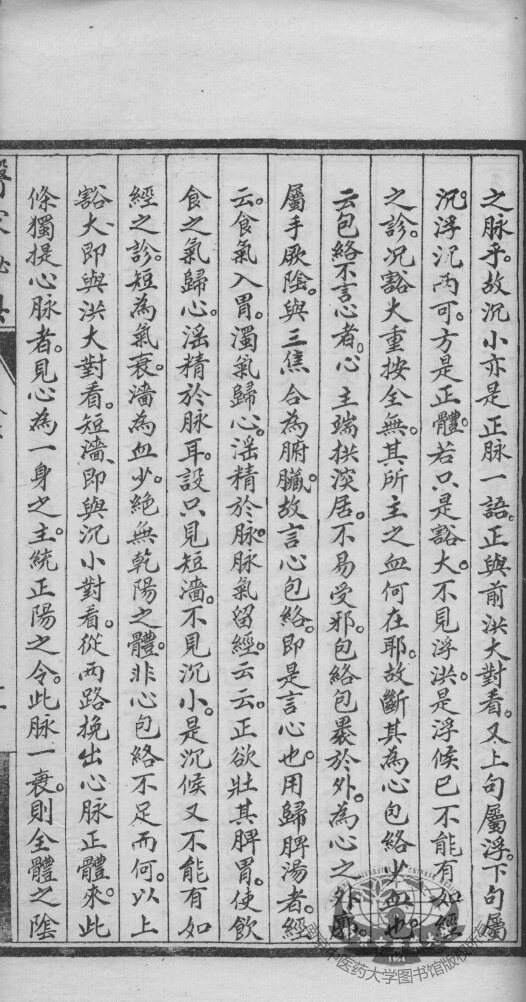 之脉乎。故沉小亦是正脉一語。正與前洪大對看。又上句屬浮。下句屬
沉。浮沉两可。方是正體。若只是豁大。不見浮洪。是浮候已不能有如經
之診。况豁大重按全無。其所主之血何在耶。故斷其為心包絡少血也。
云包絡不言心者。心主端拱深居。不易受邪。包絡包裹於外。為心之外郭。
屬手厥陰。與三焦合為腑臟。故言心包絡。即是言心也。用歸脾湯者。經
云。食氣入胃。濁氣歸心。滛精於脉。脉氣留經。云云。正欲壯其脾胃。使飲
食之氣歸心。滛精於脉耳。設只見短濇。不見沉小。是沉候又不能有如
經之診。短為氣衰。濇為血少。絶無乾陽之體。非心包絡不足而何。以上
豁大即與洪大對看。短濇。即與沉小對看。從两路挽出心脉正體來。此
條獨提心脉者。見心為一身之主。統正陽之令。此脉一衰。則全體之陰
中医药大学图书馆版权所有